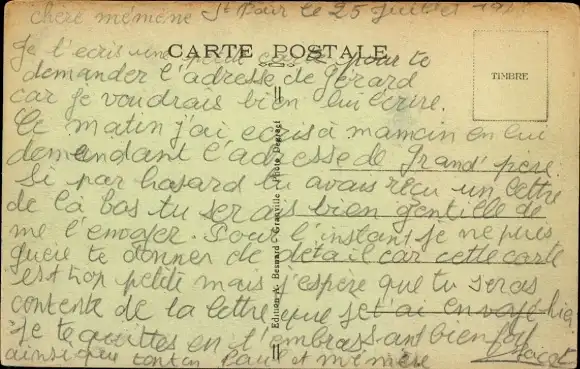 chère mémène St Pair le 25 juillet
CARTE POSTALE
TIMBRE
Je t'ecris une petite carte pour te
demander l'adresse de Gerard
car je voudrais bien lui écrire.
Ce matin j'ai ecris à maman en lui
demandant l'adresse de Grand' pere
Si par hasard tu avais réçu un lettre
de là bas tu serais bien gentille de
me l'envoyer. Pour l'instant je ne puis
te donner de détail car cette carte
est trop petite mais j'espere que tu seras
contente de la lettre que je t'ai envoyé hier
Je te quittes en t'embrassant bien fort
ainsi que tonton Paul et mémère
Edition A. Bernard - Granville - Photo